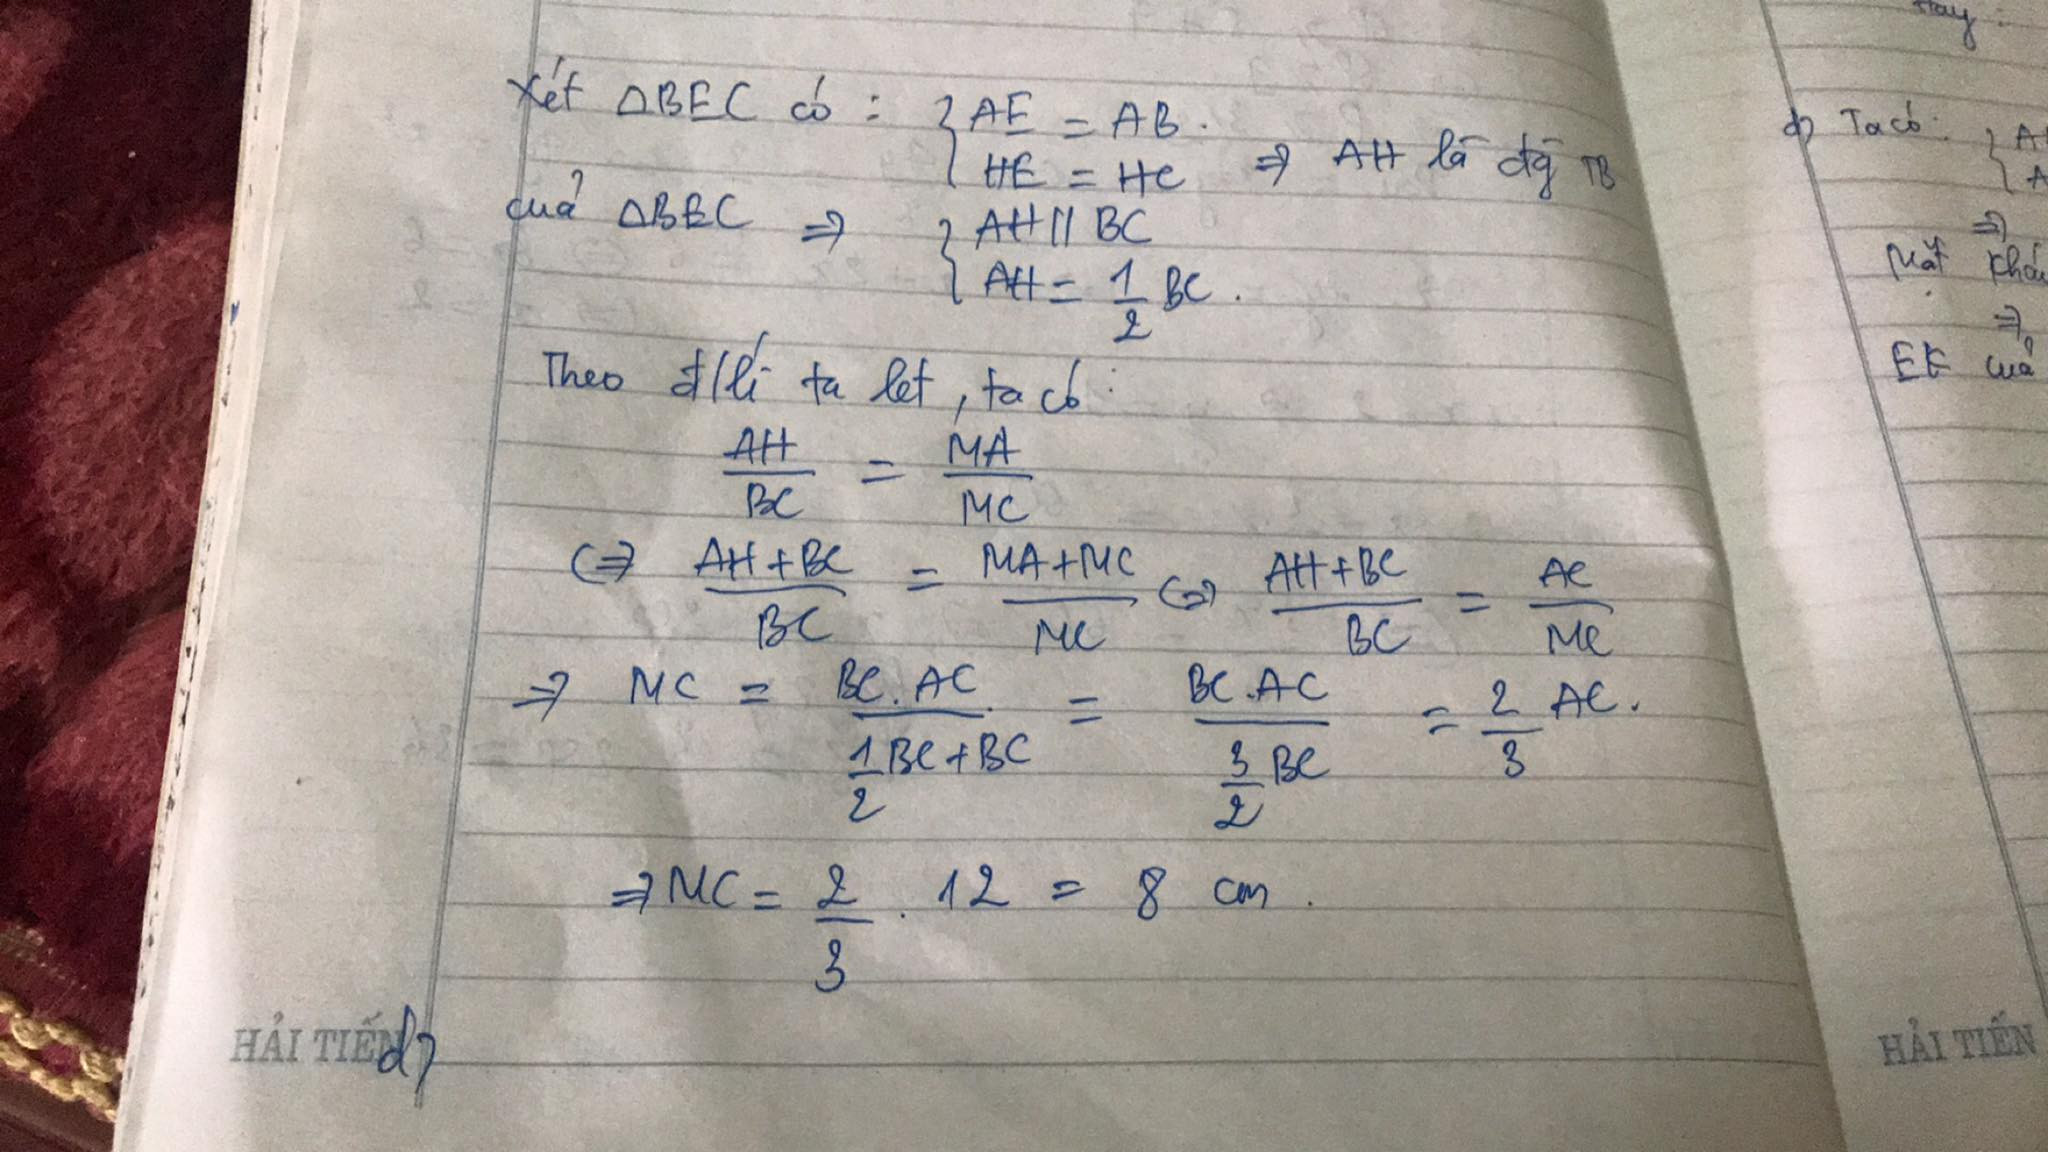 Xét △BEC có : { AE = AB.
HE = HC ⇒ AH là đg TB
của △BEC ⇒ { AH // BC
AH = 1/2 BC.
Theo đ/lí ta let, ta có :
AH/BC = MA/MC
(⇒ (AH+BC)/BC = (MA+MC)/MC (⇒ (AH+BC)/BC = AC/MC
⇒ MC = BC.AC/(1/2 BC+BC) = BC.AC/(3/2 BC) = 2/3 AC.
⇒ MC = 2/3 . 12 = 8 cm.
HẢI TIẾN d,
d, Ta có : {
⇒
Mặt
⇒
EK của
HẢI TIẾN